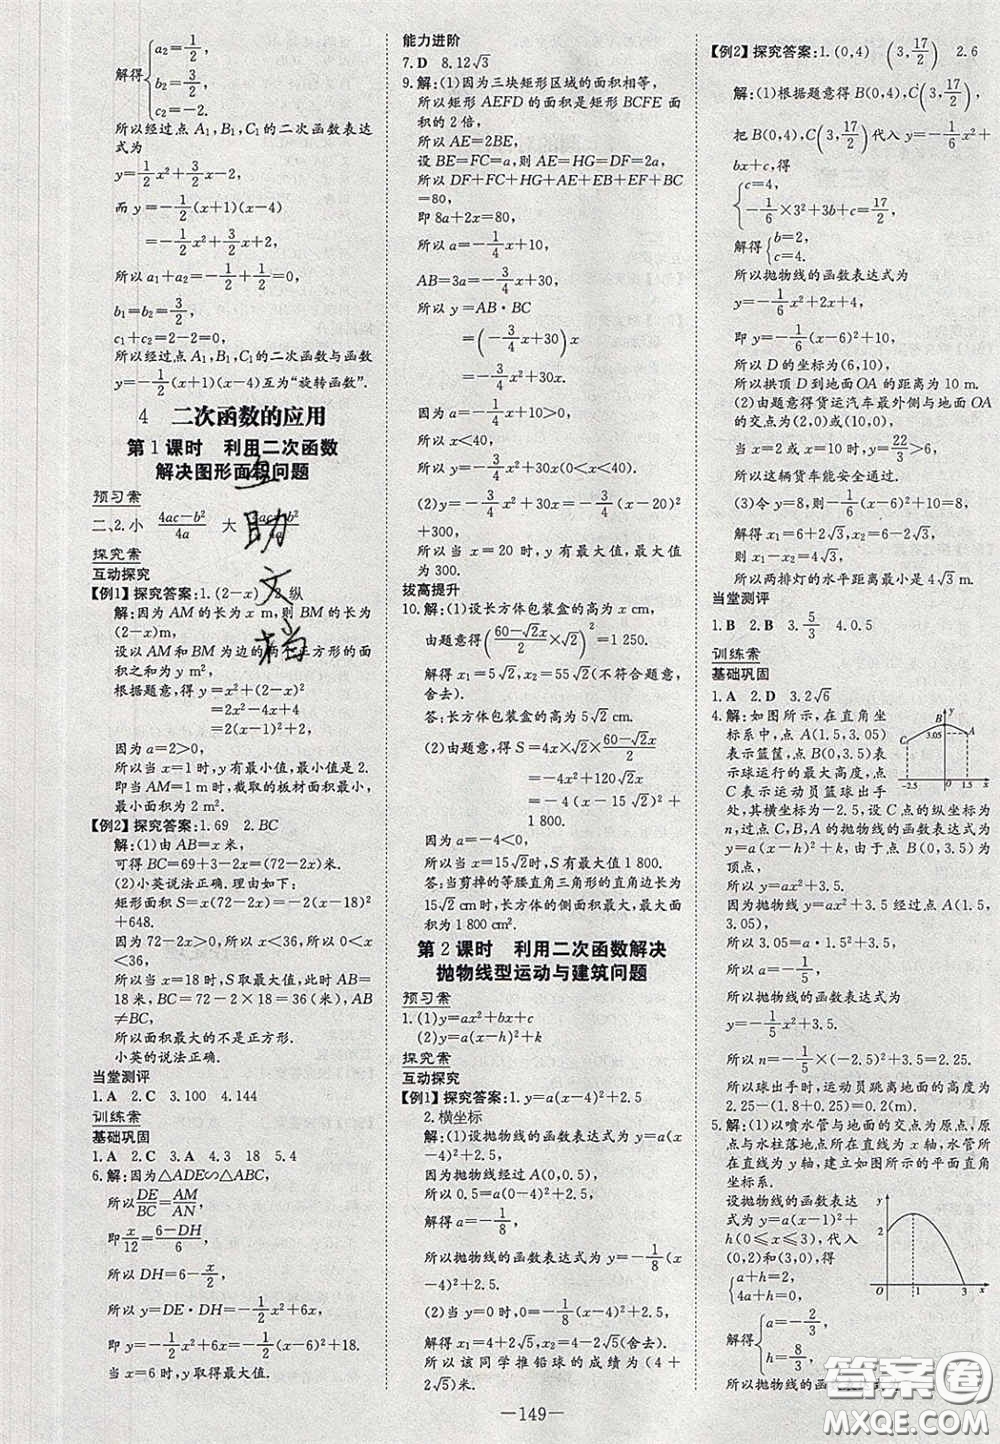 解得{a₂=1/2,
b₂=3/2,
c₂=-2.
所以经过点 A₁,B₁,C₁的二次函数表达
式为
y=1/2x²+3/2x-2,
而 y=-1/2(x+1)(x-4)
=-1/2x²+3/2x+2,
所以 a₁+a₂=-1/2+1/2=0,
b₁=b₂=3/2,
c₁+c₂=2-2=0,
所以经过点 A₁,B₁,C₁的二次函数与函数
y=-1/2(x+1)(x-4)互为“旋转函数”.
4 二次函数的应用
第1课时 利用二次函数
解决图形面积问题
预习案
二、2.小 (4ac-b²)/4a 大 (4ac-b²)/4a
探究案
互动探究
【例1】探究答案:1.(2-x) 2.纵
解:因为 AM 的长为 x m,则 BM 的长为
(2-x)m,
设以 AM 和 BM 为边的两个正方形的面
积之和为 y m²,
根据题意,得 y=x²+(2-x)²
=2x²-4x+4
=2(x-1)²+2,
因为 a=2>0,
所以当 x=1 时,y 有最小值,最小值是 2.
即当 AM=1 m 时,截取的板材面积最小,
最小面积为 2 m².
【例2】探究答案:1.69 2.BC
解:(1)由 AB=x 米,
可得 BC=69+3-2x=(72-2x)米.
(2)小英说法正确.理由如下:
矩形面积 S=x(72-2x)=-2(x-18)²
+648.
因为 72-2x>0,所以 x<36,所以 0<x<
36,所以当 x=18 时,S 取最大值,此时 AB=
18 米,BC=72-2×18=36(米),AB
≠BC,
所以面积最大的不是正方形.
小英的说法正确.
当堂测评
1.A 2.C 3.100 4.144
训练案
基础巩固
1.A 2.C 3.A 4.3 18 5.4
6.解:因为△ADE∽△ABC,
所以 DE/BC=AM/AN,
即 x/12=(6-DH)/6,
所以 DH=6-x/2,
所以 y=DE·DH=-1/2x²+6x,
即 y=-1/2x²+6x=-1/2(x-6)²+18.
当 x=6 时,y 取得最大值.
能力进阶
7.D 8.12√3
9.解:(1)因为三块矩形区域的面积相等,
所以矩形 AEFD 的面积是矩形 BCFE 面
积的 2 倍,
所以 AE=2BE,
设 BE=FC=a,则 AE=HG=DF=2a,
所以 DF+FC+HG+AE+EB+EF+BC
=80,
即 8a+2x=80,
所以 a=-1/4x+10,
AB=3a=-3/4x+30,
所以 y=AB·BC
=(-3/4x+30)x
=-3/4x²+30x.
因为 a=-1/4x+10>0,
所以 x<40,
则 y=-3/4x²+30x(0<x<40).
(2)y=-3/4x²+30x=-3/4(x-20)²
+300,
所以当 x=20 时,y 有最大值,最大值
为 300.
拔高提升
10.解:(1)设长方体包装盒的高为 x cm,
由题意得((60-√2x)/2×√2)²=1 250.
解得 x₁=5√2,x₂=55√2(不符合题意,
舍去).
答:长方体包装盒的高为 5√2 cm.
(2)由题意,得 S=4x×√2×(60-√2x)/2
=-4x²+120√2x
=-4(x-15√2)²+
1 800.
因为 a=-4<0,
所以当 x=15√2时,S有最大值 1 800.
答:当剪掉的等腰直角三角形的直角边长
为15√2 cm时,长方体的侧面积最大,最大
面积为 1 800 cm².
第2课时 利用二次函数解决
抛物线型运动与建筑问题
预习案
1.(1)y=ax²+bx+c
(2)y=a(x-h)²+k
探究案
互动探究
【例1】探究答案:1.y=a(x-4)²+2.5
2.横坐标
解:(1)设抛物线的函数表达式为 y=a(x-4)²+2.5,
抛物线经过 A(0,0.5),
所以 0.5=a(0-4)²+2.5,
解得 a=-1/8,
所以抛物线的函数表达式为 y=-1/8(x-
4)²+2.5.
(2)当 y=0时,0=-1/8(x-4)²+2.5,
解得 x₁=4+2√5,x₂=4-2√5(舍去).
所以该同学推铅球的成绩为(4+
2√5)米.
【例2】探究答案:1.(0,4) (3,17/2) 2.6
解:(1)根据题意得 B(0,4),C(3,17/2),
把 B(0,4),C(3,17/2)代入 y=-1/6x²+
bx+c,得
{c=4,
-1/6×3²+3b+c=17/2,
解得{b=2,
c=4.
所以抛物线的函数表达式为
y=-1/6x²+2x+4,
即 y=-1/6(x-6)²+10,
所以 D 的坐标为(6,10),
所以拱顶 D 到地面 OA 的距离为 10 m.
(2)由题意得货运汽车最外侧与地面 OA
的交点为(2,0)或(10,0),
当 x=2 或 x=10 时,y=22/3>6,
所以这辆货车能安全通过.
(3)令 y=8,则-1/6(x-6)²+10=8,
解得 x₁=6+2√3,x₂=6-2√3,
则 x₁-x₂=4√3,
所以两排灯的水平距离最小是 4√3 m.
当堂测评
1.B 2.B 3.-5/3 4.0.5
训练案
基础巩固
1.A 2.D 3.2√6
4.解:如图所示,在直角坐
标系中,点 A(1.5,3.05)
表示篮筐,点 B(0,3.5)表
示球运行的最大高度,点
C 表示运动员篮球出手
处,其横坐标为-2.5,设 C 点的纵坐标为
n,过点 C,B,A 的抛物线的函数表达式为
y=a(x-h)²+k,由于点 B(0,3.5)为
顶点,
所以 y=ax²+3.5.
因为抛物线 y=ax²+3.5 经过点 A(1.5,
3.05),
所以 3.05=a·1.5²+3.5,
所以 a=-1/5,
所以抛物线的函数表达式为
y=-1/5x²+3.5.
所以 n=-1/5×(-2.5)²+3.5=2.25.
所以球出手时,运动员跳离地面的高度为
2.25-(1.8+0.25)=0.2(m).
5.解:(1)以喷水管与地面的交点为原点,原
点与水柱落地点所在直线为 x 轴,水管所
在直线为 y 轴,建立如图所示的平面直角
坐标系.
设抛物线的函数表达
式为 y=a(x-1)²+
h(0≤x≤3),代入
(0,2)和(3,0),得
{a+h=2,
4a+h=0.
解得{a=-2/3,
h=8/3.
B y A 3.05 C -2.5 O 1.5 x
y 2 O 1 3 x
互助文档
答案圈
MXQE.COM
—149—